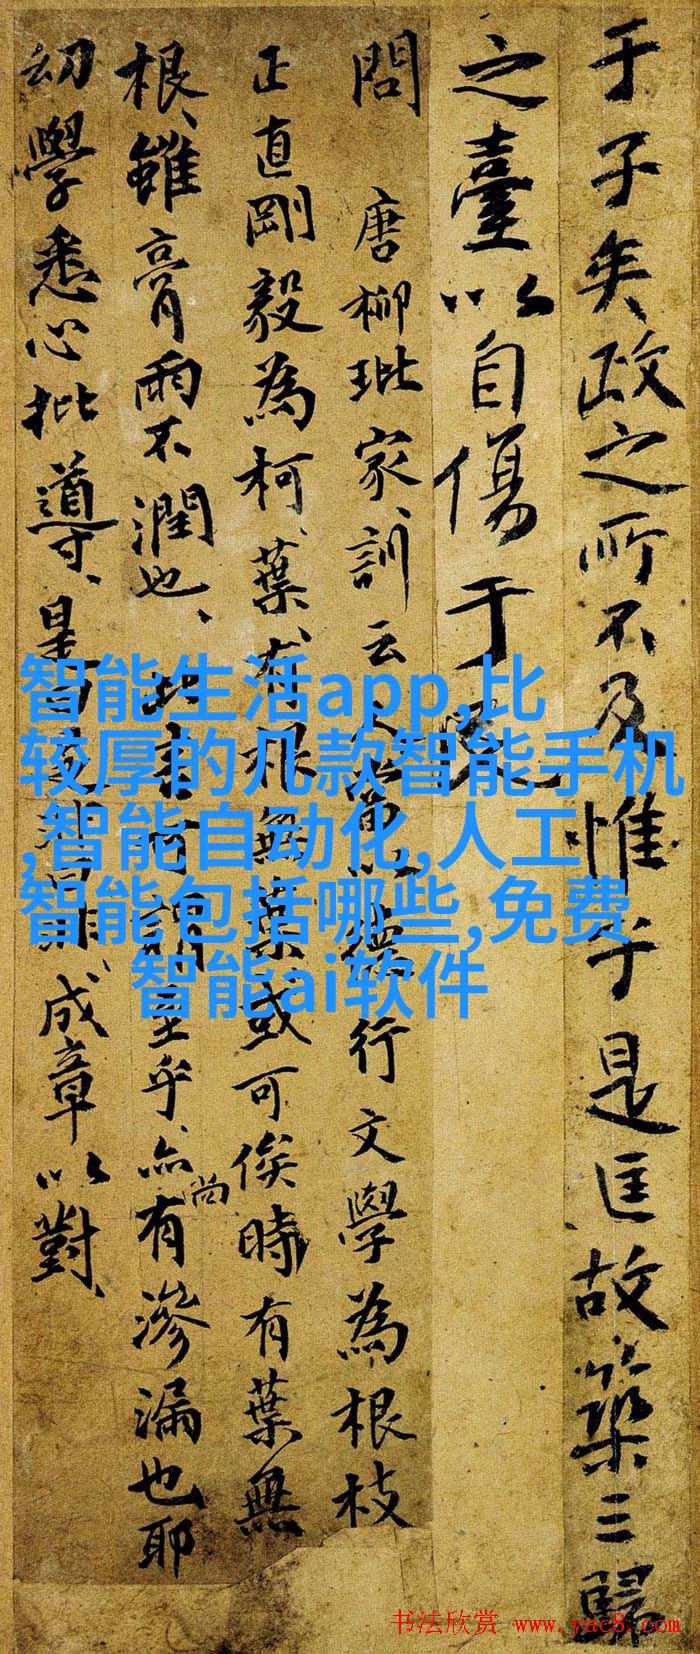 于子矣政之所不及惟于是匡故築三歸
之臺以自傷于民
問 唐柳玭家訓云夫以德行文學為根枝
正直剛毅為柯葉有根無葉或可俟時有葉無
根雖膏雨不潤也
有滲漏也耶
尚
幼學悉心批導
成章以對
智能生活app,比
较厚的几款智能手机
,智能自动化,人工
智能包括哪些,免费
智能ai软件
书法欣赏 www.yac8.com